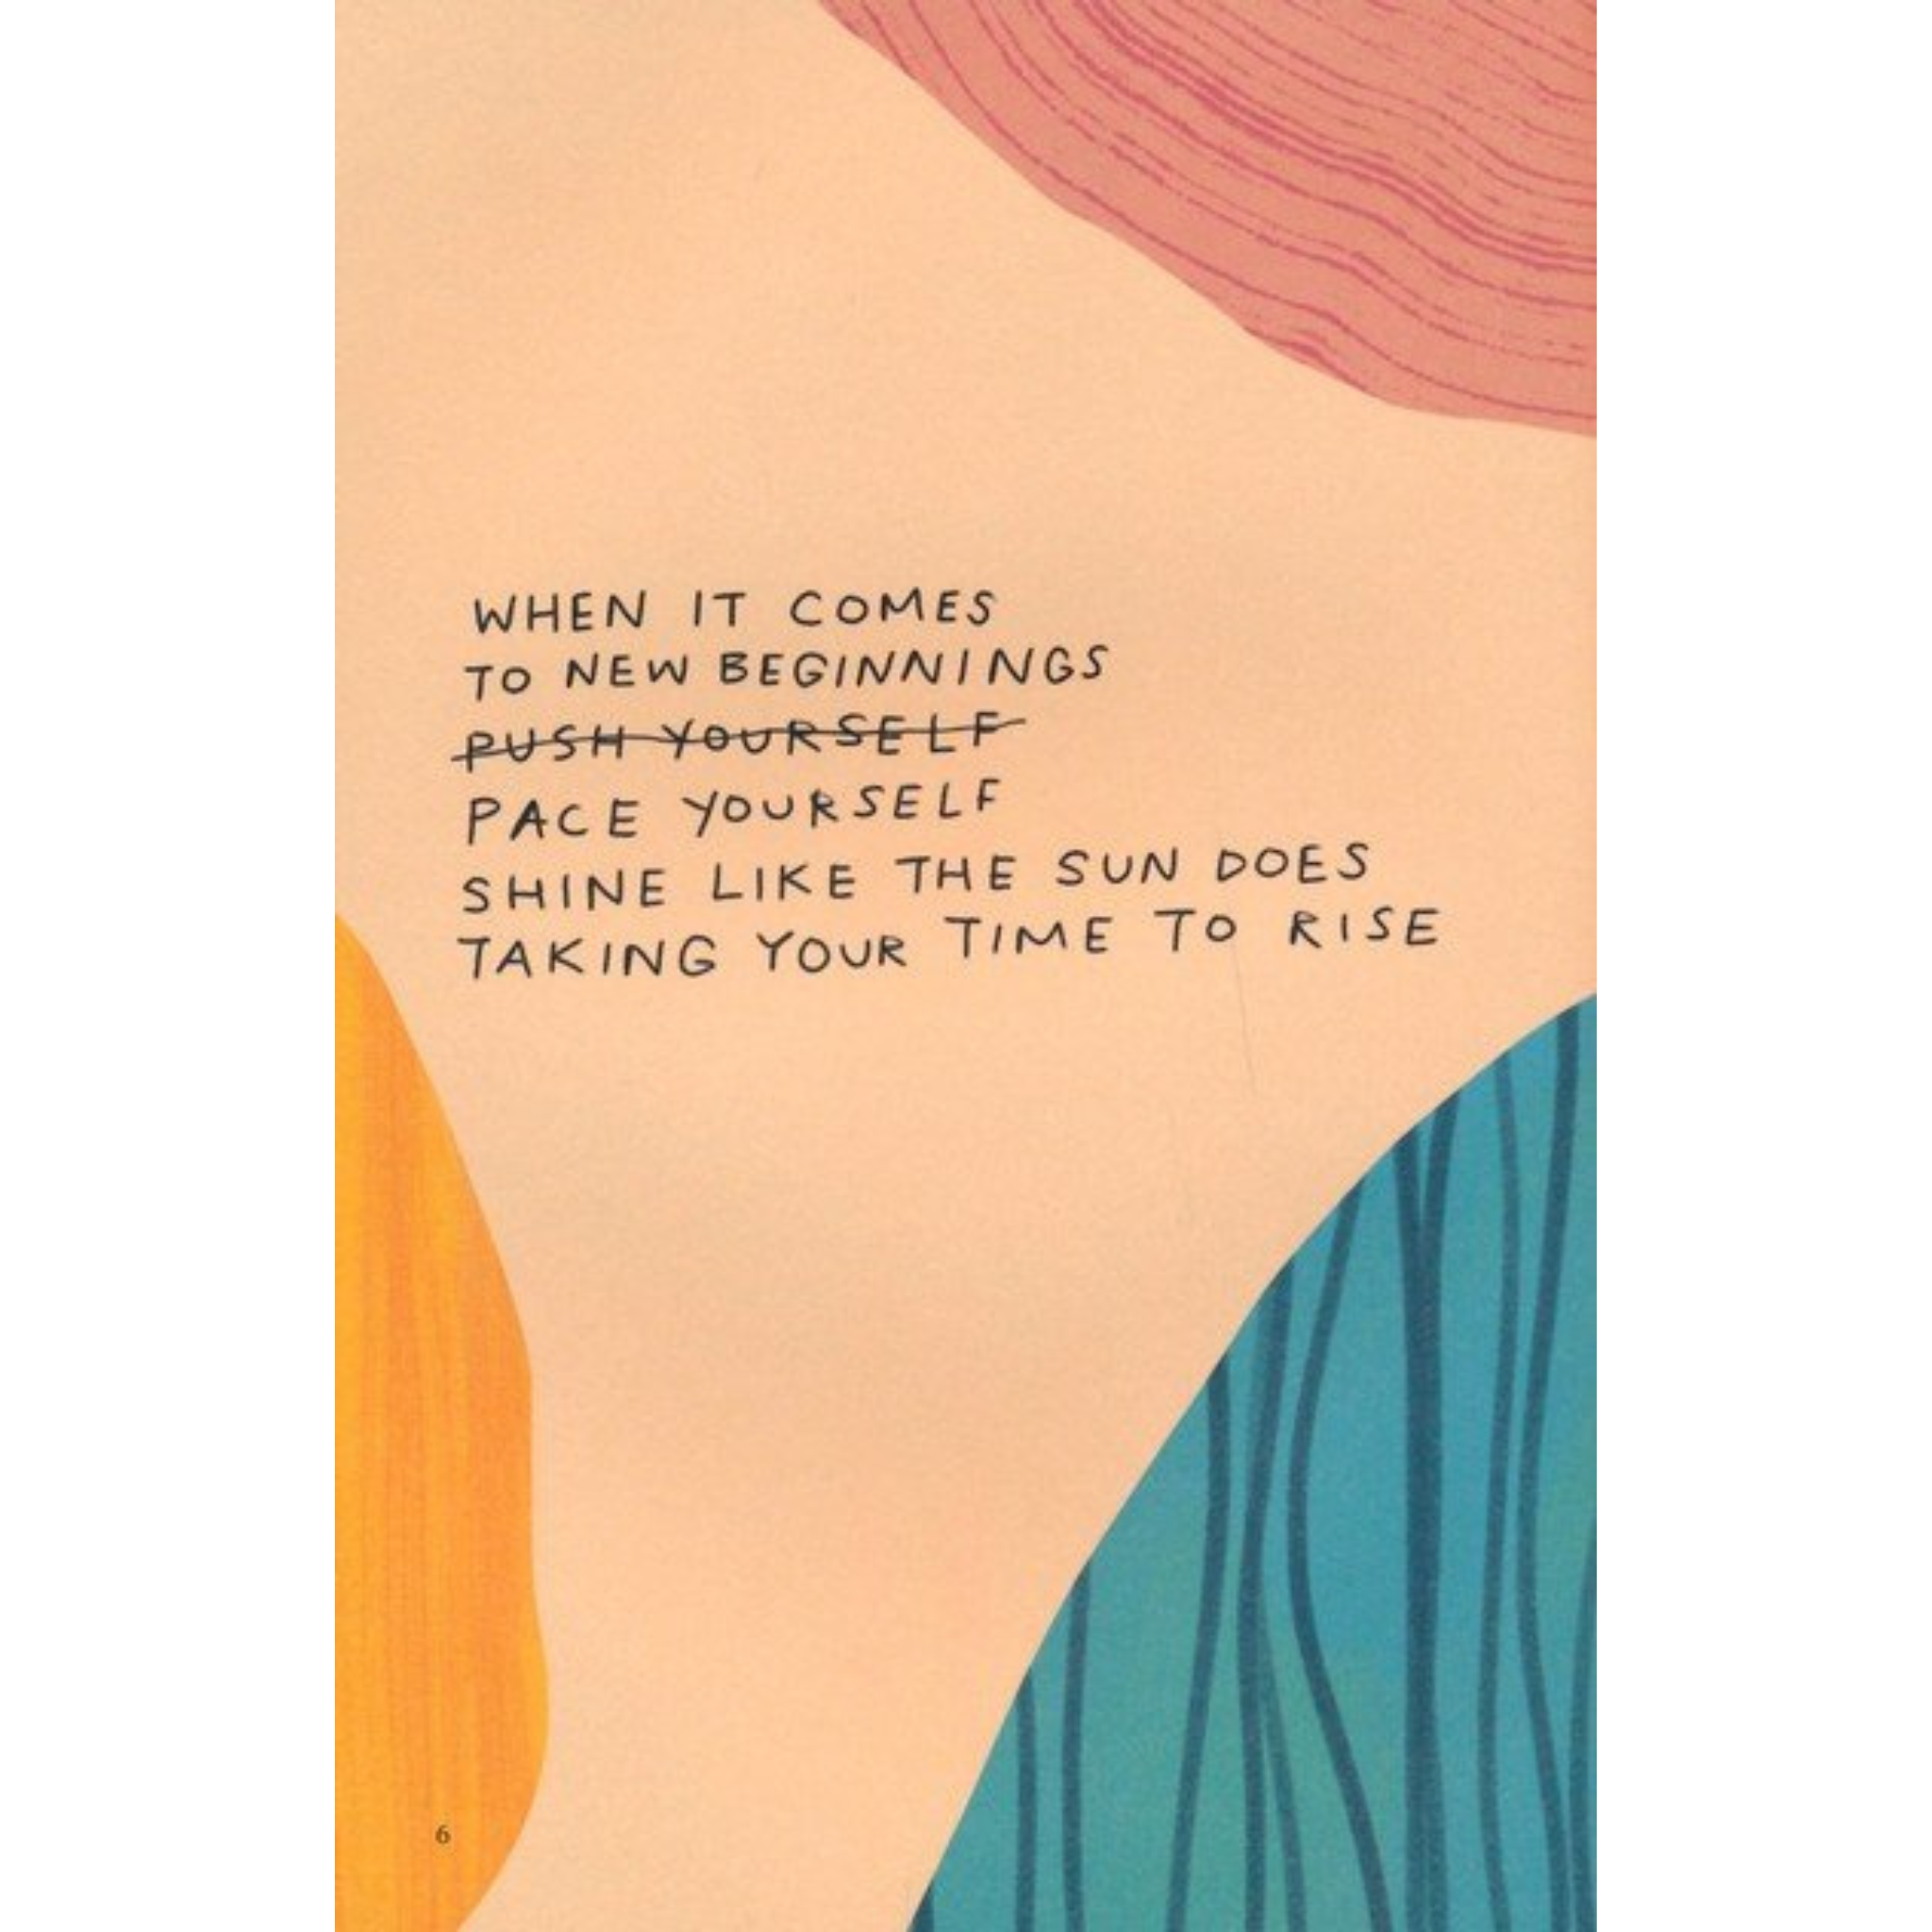 WHEN IT COMES
TO NEW BEGINNINGS
PUSH YOURSELF
PACE YOURSELF
SHINE LIKE THE SUN DOES
TAKING YOUR TIME TO RISE
6